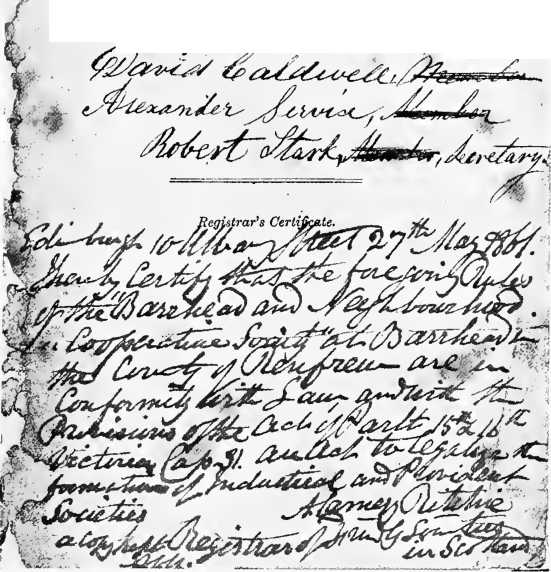 David Caldwell, Member
Alexander Service, Member
Robert Stark, Member, Secretary.
Registrar's Certificate.
Edinburgh 10 Albany Street 27th May 1861.
I hereby Certify that the foregoing Rules
of the "Barrhead and Neighbourhood
Cooperative Society" at Barrhead in
the County of Renfrew are in
Conformity with Law, and with the
Provisions of the Act of Parlt. 15th & 16th
Victoria Cap. 31. an Act to legalize the
formation of Industrial and Provident
Societies
Ritchie
a copy kept Registrar of Friendly Societies
in Scotland